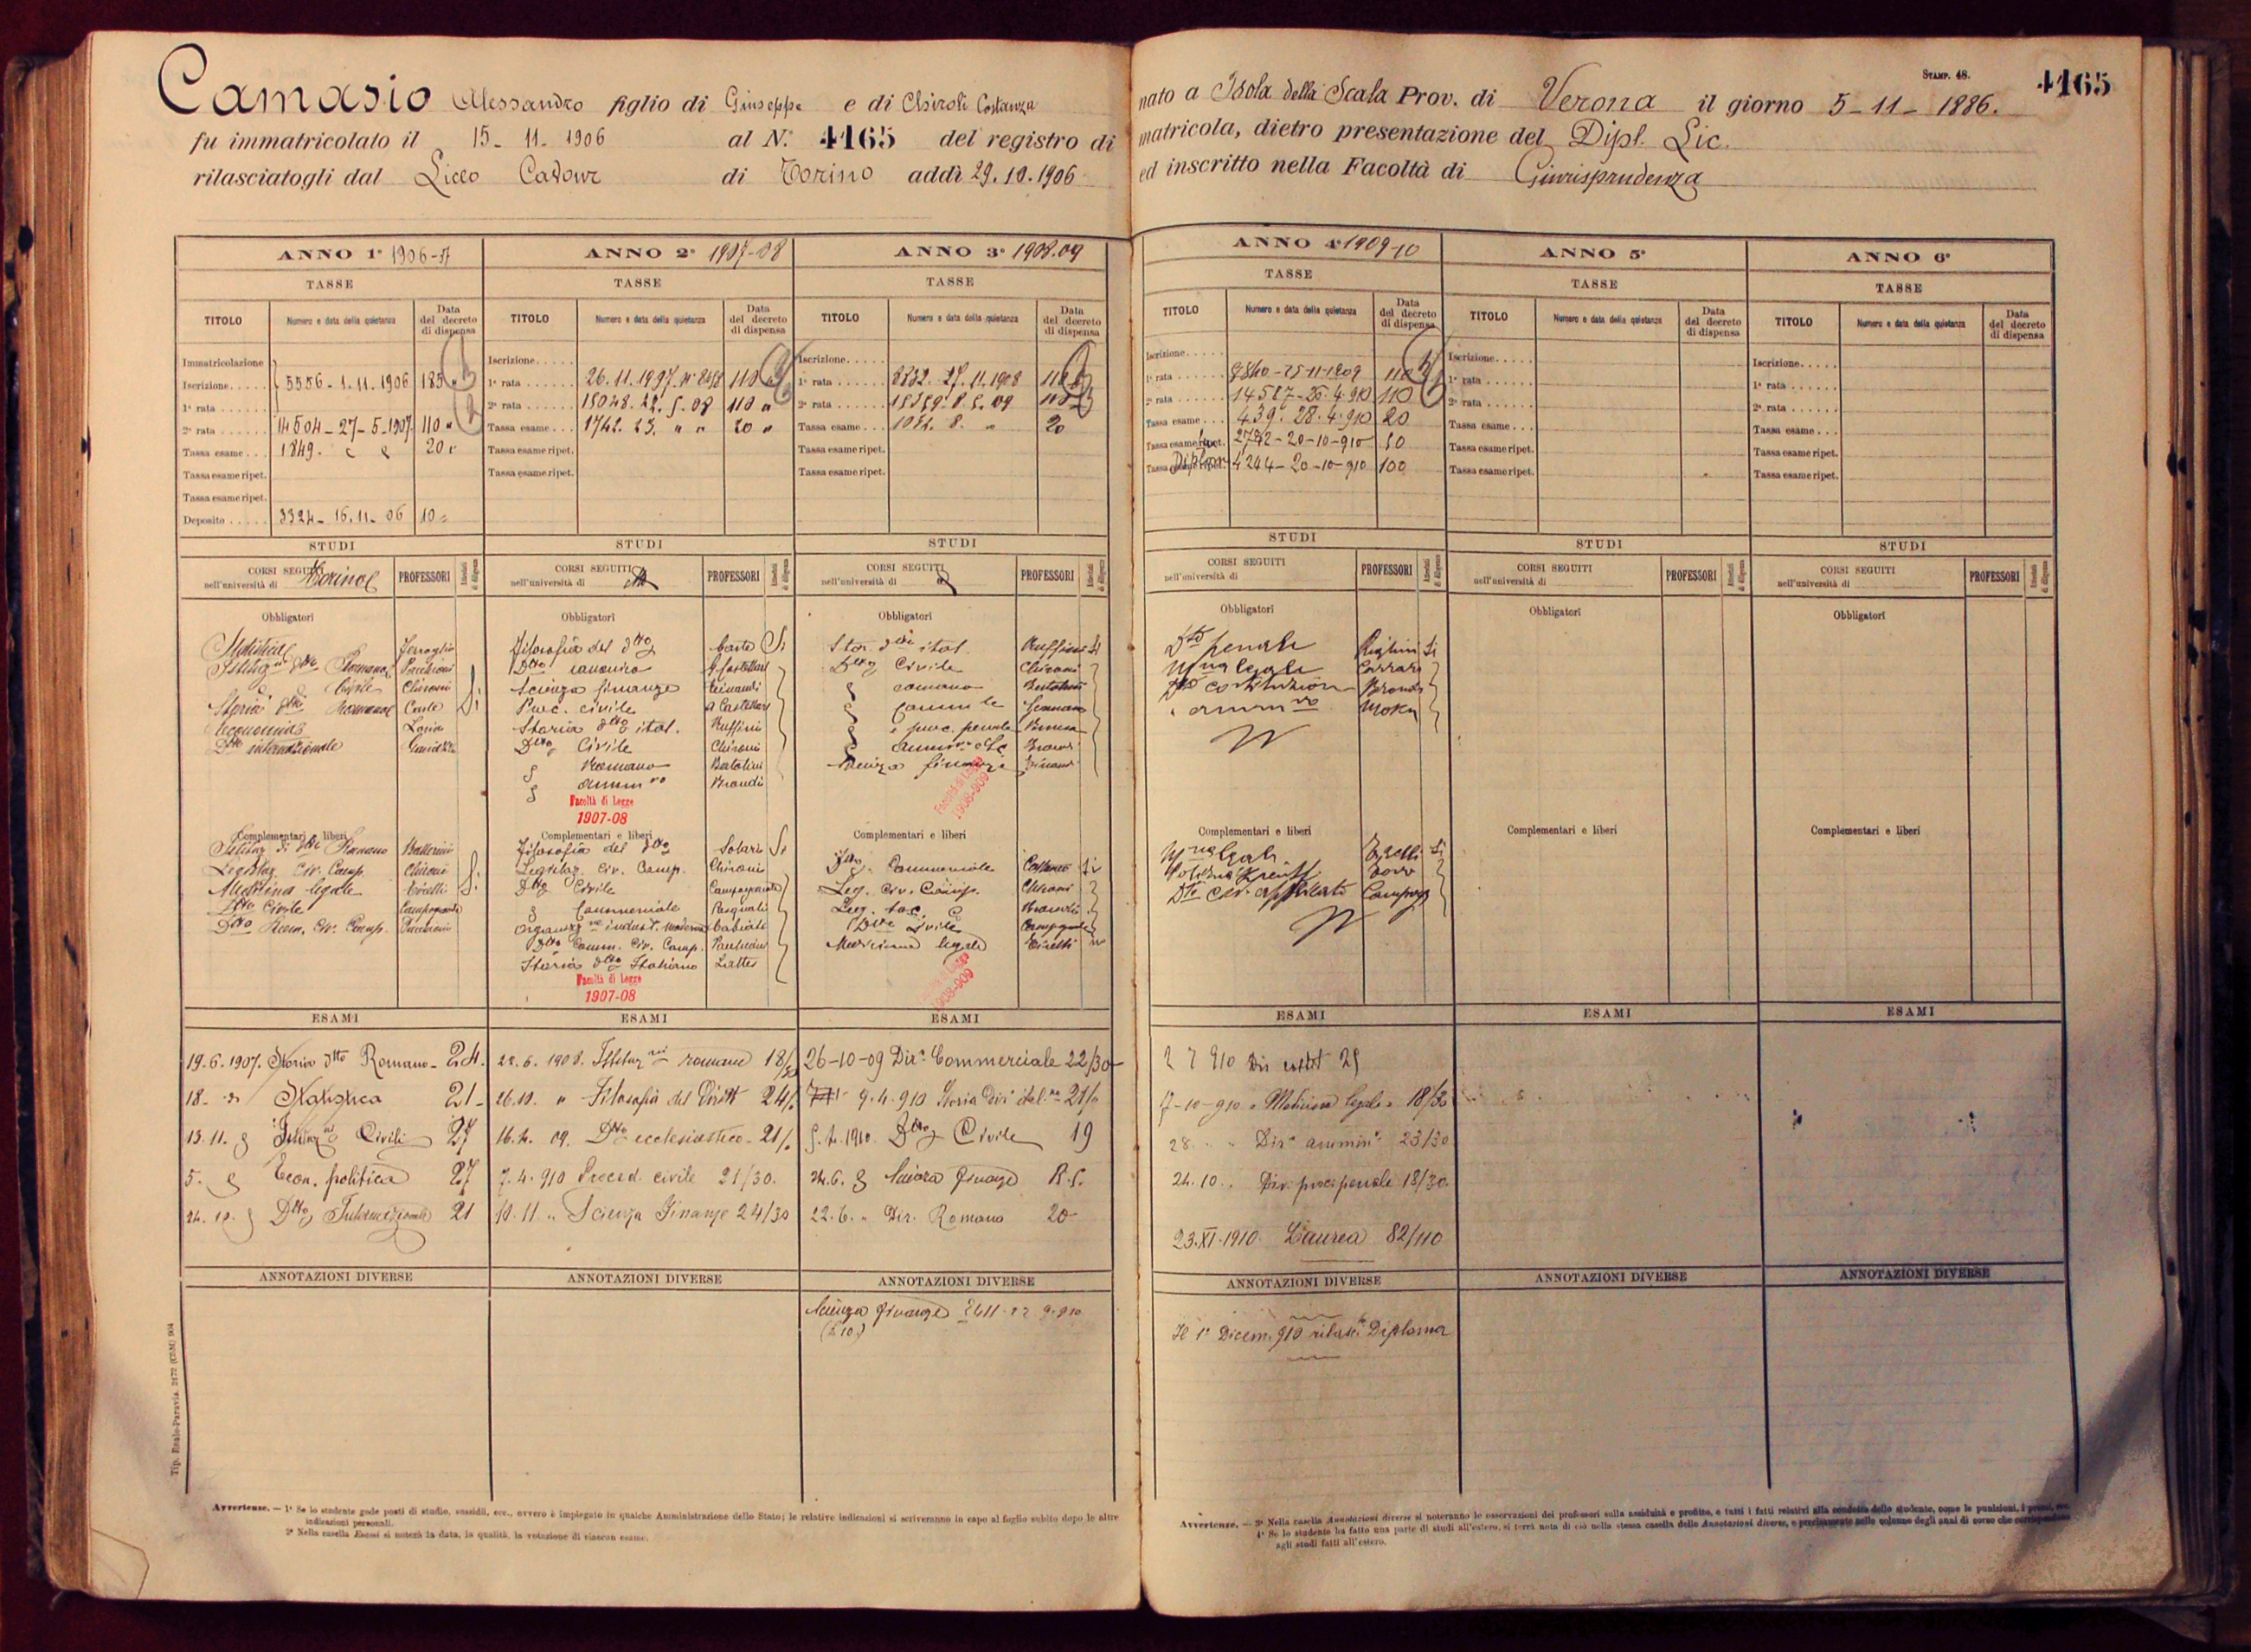 STAMP. 48.
4165
Camasio Alessandro figlio di Giuseppe e di Chiroli Costanza nato a Isola della Scala Prov. di Verona il giorno 5-11-1886.
fu immatricolato il 15-11-1906 al N.° 4165 del registro di matricola, dietro presentazione del Dipl. Lic.
rilasciatogli dal Liceo Cavour di Torino addì 29.10.1906 ed inscritto nella Facoltà di Giurisprudenza
ANNO 1° 1906-7
TASSE
TITOLO Numero e data della quietanza Data del decreto di dispensa
Immatricolazione
Iscrizione..... 5556-1.11.1906 185
1ª rata ......
2ª rata ...... 14504-27-5-1907 110 "
Tassa esame... 1849. 20
Tassa esame ripet.
Tassa esame ripet.
Deposito ..... 3324-16.11-06 10
STUDI
CORSI SEGUITI
nell'università di Torino
PROFESSORI
Attestati di diligenza
Obbligatori
Statistica
Istituz.ni Dtto Romano Pacchioni
Civile Chironi
Storia Dtto Romano Carle
Economia Loria
Dtto internazionale
Si
Complementari e liberi
Istituz. di Dtto Romano
Legislaz. Civ. Comp. Chironi
Medicina legale
Dtto Civile
Dtto Rom. Civ. Comp. Pacchioni
Si
ESAMI
19.6.1907. Storia Dtto Romano-24.
18- Statistica 21-
13.11. Istituz.ni Civili 27
5. Econ. politica 27
24.10. Dtto Internazionale 21
ANNOTAZIONI DIVERSE
ANNO 2° 1907-08
TASSE
TITOLO Numero e data della quietanza Data del decreto di dispensa
Iscrizione.....
1ª rata ...... 26.11.1907. 110
2ª rata ...... 15048.22.5.08 110 "
Tassa esame... 1742. 23. " " 20 "
Tassa esame ripet.
Tassa esame ripet.
STUDI
CORSI SEGUITI
nell'università di
PROFESSORI
Attestati di diligenza
Obbligatori
Filosofia del dtto Carle Si
Dtto canonico
Scienza finanze Einaudi
Proc. civile
Storia dtto ital. Ruffini
Dtto Civile Chironi
Romano Bertolini
Amm.vo Brondi
Facoltà di Legge
1907-08
Complementari e liberi
Filosofia del dtto Solari Si
Legislaz. civ. Comp. Chironi
Dtto Civile Campogrande
Commerciale Pasquali
Organizz.ne indust. moderna Cabiati
Dtto Comm. Civ. Comp. Pacchioni
Storia dtto Italiano Lattes
Facoltà di Legge
1907-08
ESAMI
22.6.1908. Istituz.ni romano 18/30
26.10. " Filosofia del Diritto 24/.
16.4. 09. Dtto ecclesiastico-21/.
7.4.910 Proced. civile 21/30.
10.11. " Scienza Finanze 24/30
ANNOTAZIONI DIVERSE
ANNO 3° 1908.09
TASSE
TITOLO Numero e data della quietanza Data del decreto di dispensa
Iscrizione.....
1ª rata ...... 27.11.1908 110
2ª rata ......
Tassa esame... 20
Tassa esame ripet.
Tassa esame ripet.
STUDI
CORSI SEGUITI
nell'università di
PROFESSORI
Attestati di diligenza
Obbligatori
Stor. dtto ital. Ruffini Si
Dtto Civile Chironi
romano Bertolini
Comm.le Germano
e proc. penale
Amm.vo Brondi
Scienza finanze Einaudi
Facoltà di Legge
1908-909
Complementari e liberi
Dtto. Commerciale Si
Leg. Civ. Comp. Chironi
Leg. soc.
Dtto Civile Campogrande
Medicina legale
1908-909
ESAMI
26-10-09 Dir° Commerciale 22/30
9.4.910 Storia Dir° ital.no 21/
1910. Dtto Civile 19
24.6. Scienza Finanze R.
22.6. " Dir. Romano 20
ANNOTAZIONI DIVERSE
Scienza Finanze
ANNO 4° 1909-10
TASSE
TITOLO Numero e data della quietanza Data del decreto di dispensa
Iscrizione.....
1ª rata ...... 110
2ª rata ...... 110
Tassa esame... 439. 28.4.910 20
Tassa esame ripet. 2742-20-10-910 50
Diploma 4244-20-10-910 100
STUDI
CORSI SEGUITI
nell'università di
PROFESSORI
Attestati di diligenza
Obbligatori
Dtto penale Si
M.na legale Carrara
Dtto costituzion Brondi
amm.vo
Complementari e liberi
M.na legale Si
Dtto civ.
ESAMI
2 7 910 Dir costit 25
7-10-910 " Medicina legale " 18/30
28. " " Dir° ammin° 23/30
24.10.. Dir. proc. penale 18/30.
23.XI.1910 Laurea 82/110
ANNOTAZIONI DIVERSE
Il 1° Dicem. 910 rilasc. Diploma
ANNO 5°
TASSE
TITOLO Numero e data della quietanza Data del decreto di dispensa
Iscrizione.....
1ª rata ......
2ª rata ......
Tassa esame...
Tassa esame ripet.
Tassa esame ripet.
STUDI
CORSI SEGUITI
nell'università di
PROFESSORI
Attestati di diligenza
Obbligatori
Complementari e liberi
ESAMI
ANNOTAZIONI DIVERSE
ANNO 6°
TASSE
TITOLO Numero e data della quietanza Data del decreto di dispensa
Iscrizione.....
1ª rata ......
2ª rata ......
Tassa esame...
Tassa esame ripet.
Tassa esame ripet.
STUDI
CORSI SEGUITI
nell'università di
PROFESSORI
Attestati di diligenza
Obbligatori
Complementari e liberi
ESAMI
ANNOTAZIONI DIVERSE
Avvertenze. — 1ª Se lo studente gode posti di studio, sussidii, ecc., ovvero è impiegato in qualche Amministrazione dello Stato; le relative indicazioni si scriveranno in capo al foglio subito dopo le altre
indicazioni personali.
2ª Nella casella Esami si noterà la data, la qualità, la votazione di ciascun esame.
Avvertenze. — 3ª Nella casella Annotazioni diverse si noteranno le osservazioni dei professori sulla assiduità e profitto, e tutti i fatti relativi alla condotta dello studente, come le punizioni, i premi, ecc.
4ª Se lo studente ha fatto una parte di studi all'estero, si terrà nota di ciò nella stessa casella delle Annotazioni diverse, e precisamente nelle colonne degli anni di corso che corrispondono
agli studi fatti all'estero.